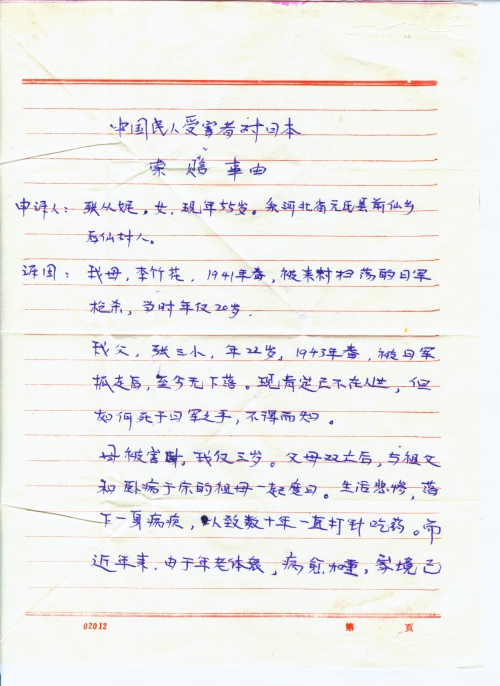 中国民人受害者对日本
索赔事由
申诉人：张从妮，女，现年55岁。系河北省元氏县前仙乡
后仙村人。
诉因：我母，李竹花，1941年春，被来村扫荡的日军
枪杀，当时年仅20岁．
我父，张三小，年22岁，1943年春，被日军
抓走后，至今无下落。现肯定已不在人世，但
如何死于日军之手，不得而知。
母被害时，我仅三岁。父母双亡后，与祖父
和卧病于床的祖母一起度日。生活悲惨，落
下一身病疾，以致数十年一直打针吃药。而
近年来，由于年老体衰，病愈加重，家境已
02012 第 页